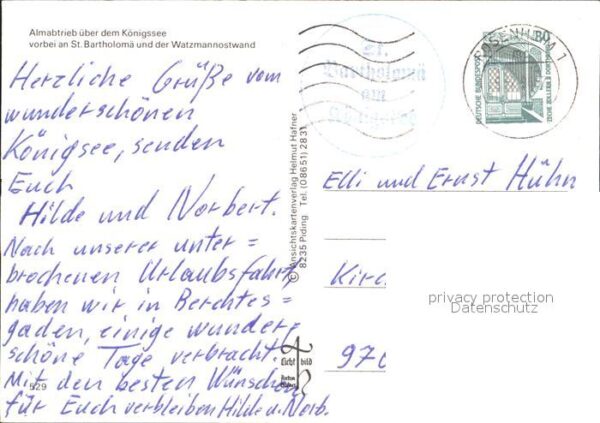 Almabtrieb über dem Königssee
vorbei an St. Bartholomä und der Watzmannostwand
Herzliche Grüße vom
wunderschönen
Königsee, senden
Euch
Hilde und Norbert.
Nach unserer unter =
brochenen Urlaubsfahrt
haben wir in Berchtes =
gaden, einige wunder
schöne Tage verbracht.
Mit den besten Wünschen
für Euch verbleiben Hilde u. Norb.
529
© Ansichtskartenverlag Helmut Hafner
8235 Piding Tel. (08651) 2831
Licht bild
St.
Bartholomä
am
Königssee
ROSENHEIM 1
80
DEUTSCHE BUNDESPOST
Elli und Ernst Hühn
Kirc
970
privacy protection
Datenschutz